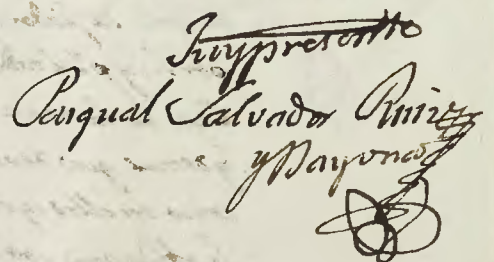 Fuy presente
Pasqual Salvador Ruiz
y Dayona